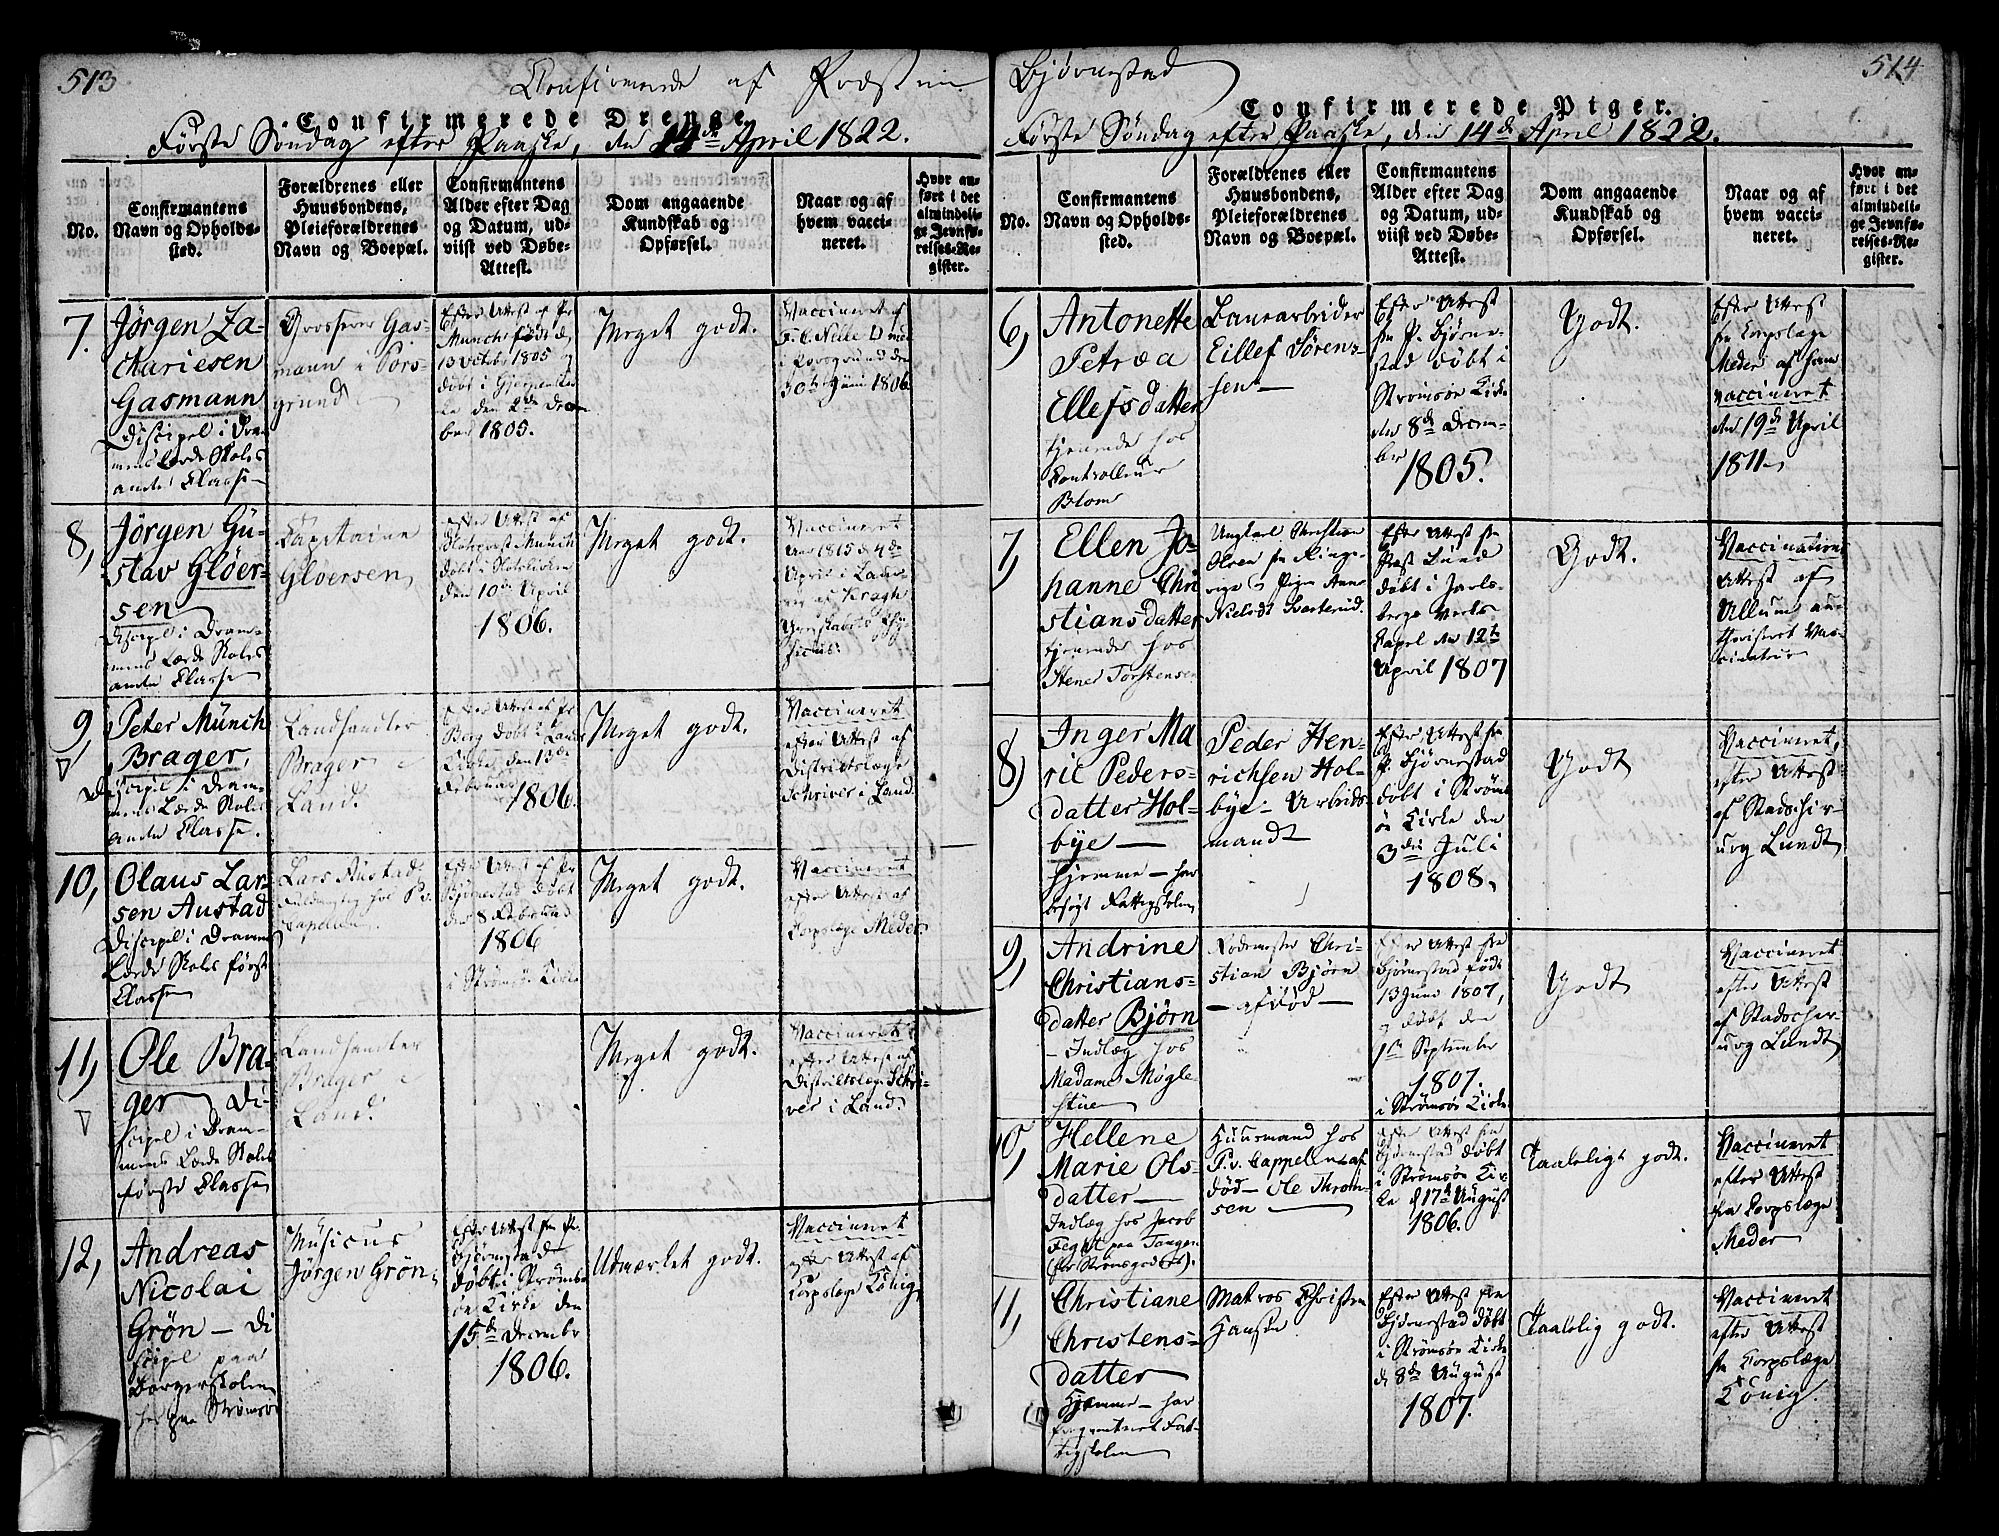 513
Confirmerede af Præsten
Confirmerede Drenge.
Første Søndag efter Paaske, den 14de April 1822.
No.
Confirmantens
Navn og Opholds-
sted.
Forældrenes eller
Huusbondens,
Pleieforældrenes
Navn og Boepæl.
Confirmantens
Alder efter Dag
og Datum, ud-
viist ved Døbe-
Attest.
Dom angaaende
Kundskab og
Opførsel.
Naar og af
hvem vacci-
neret.
Hvor an-
ført i det
almindeli-
ge Jevnfø-
relses-Re-
gister.
7.
Jørgen Za-
chariesen
Gasmann
Discipel i Dram-
mens Lærde Skoles
anden Classe
Grosserer Gas-
mann i Pors-
grund
Efter Attest af Pr
Munch født d.
13 Octbr 1805 og
døbt i Gjerpens Kir-
ke den 2de Decem-
ber 1805.
Meget godt.
Vaccineret af
i Porsgrund den
30te Juni 1806
8,
Jørgen Gu-
stav Gløer-
sen
Discipel i Dram-
mens Lærde Skoles
anden Classe
Capitaine
Gløersen,
Efter Attest af
Slotspræst Munch
døbt i Slotskirken
den 10de April
1806.
Meget godt.
Vaccineret
Aar 1815 d 4de
April i Laur-
vig af Kragh
Grevskabets Phy-
sicus.
9,
Peter Münch
Brager,
Discipel i Dram-
mens Lærde Skoles
anden Classe.
Landhandler
Brager i
Land.
Efter Attest af Pr
Berg døbt i Lands
Kirke, den 13de
Februar 1806.
Meget godt.
Vaccineret
efter Attest af
Districtslæge
Schriver i Land.
10,
Olaus Lar-
sen Austad
Discipel i Dramms
Lærde Skoles første
Classe
Lars Austad
Fuldmægtig hos P. v.
Cappelen.
Efter Attest af Pr
Bjørnestad døbt
den 8 Februar
1806
i Strømsø Kirke
Meget godt.
Vaccineret
efter Attest af
Corpslæge Meder
11,
Ole Bra-
ger Di-
scipel i Dram-
mens Lærde Skoles
første Classe
Landhandler
Brager i
Land.
Meget godt.
Vaccineret
efter Attest af
Districtslæge Schri-
ver i Land.
12,
Andreas
Nicolai
Grøn — Di
scipel paa
Borgerskolen
her paa Strømsø
Musicus
Jørgen Grøn,
Efter Attest fra Pr.
Bjørnestad
døbt i Strøms-
øe Kirke den
15de December
1806.
Udmærket godt.
Vaccineret
efter Attest af
Corpslæge König
514
Bjørnestad
Confirmerede Piger.
Første Søndag efter Paaske, den 14de April 1822.
No.
Confirmantens
Navn og Opholds-
sted.
Forældrenes eller
Huusbondens,
Pleieforældrenes
Navn og Boepæl.
Confirmantens
Alder efter Dag
og Datum, ud-
viist ved Døbe-
Attest.
Dom angaaende
Kundskab og
Opførsel.
Naar og af
hvem vacci-
neret.
Hvor an-
ført i det
almindeli-
ge Jevnfø-
relses-Re-
gister.
6,
Antonette
Petrea
Ellefsdatter
tjenende hos
Controlleur
Blom
Laanearbeider
Eillef Sören-
sen
Efter Attest
fra P. Bjørne-
stad døbt i
Strømsøe Kirke
den 8de Decem-
ber
1805.
Godt.
Efter Attest
fra Corpslæge
Meder af ham
vaccineret
den 19de April
1811
7,
Ellen Jo-
hanne Chri
stiansdatter
tjenende hos
Stener Torstensen
Ungkarl Christian
Olsen fra Ringe-
rige og Pige Anne
Nielsdt Svarterud.
Efter Attest fra
Præst Lund
døbt i Jarls-
bergs Verks
Capel den 12te
April 1807
Godt.
Vaccinations
Attest af
Ullum au-
thoriseret Vac-
cinateur
8,
Inger Ma
ril Peders-
datter Hol-
bye —
hjemme — har
besøgt Fattigskolen
Peder Hen-
richsen Hol-
bye — Arbeids-
mand
Efter Attest fra
P. Bjørnestad
døbt i Strøms-
øe Kirke den
3die Juli
1808,
Godt
Vaccineret,
efter Attest
af Stadschir-
urg Lundt
9,
Andrine
Christians-
datter Bjørn
— Indlæg hos
Madame Møgle-
stue
Rodemester Chri-
stian Bjørn
— afdød —
Efter Attest fra
Bjørnestad født
13 Juni 1807,
og døbt den
1ste September
1807.
i Strømsø Kirke
Godt
Vaccineret
efter Attest
af Stadschir-
urg Lundt
10,
Hellene
Marie Ols-
datter —
Indlæg hos Jacob
Feght paa Tangen
(for Strømsgodset).
Huusmand hos
P. v. Cappelen af-
død — Ole Throm-
sen
Efter Attest fra
Bjørnestad døbt
i Strømsøe Kir
ke d 17de August
1806.
Taalelig godt.
Vaccineret
efter Attest
fra Corpslæge
Meder
11,
Christiane
Christens-
datter
Hjemme — har
frequenteret Fat-
tigskolen
Matros Christen
Hansen
Efter Attest fra
Bjørnestad døbt
i Strømsøe Kirke
d 8de August
1807.
Taalelig godt.
Vaccineret
efter Attest
fra Corpslæge
König.